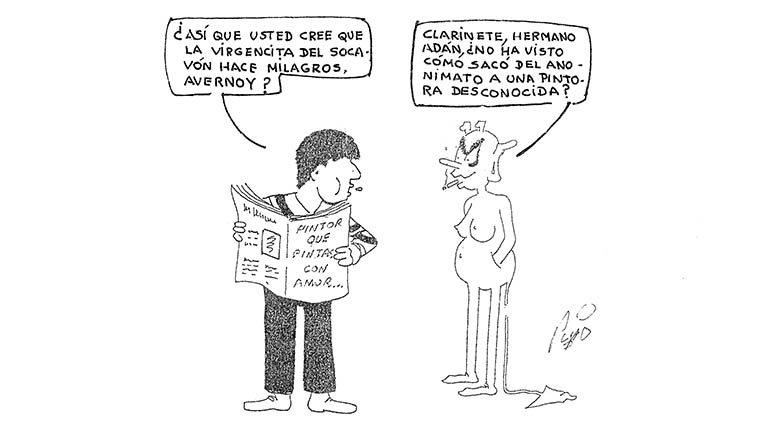 ¿ASÍ QUE USTED CREE QUE
LA VIRGENCITA DEL SOCA-
VÓN HACE MILAGROS,
AVERNOY?
CLARINETE, HERMANO
ADÁN, ¿NO HA VISTO
CÓMO SACÓ DEL ANO-
NIMATO A UNA PINTO-
RA DESCONOCIDA?
PINTOR
QUE
PINTAS
CON
AMOR...